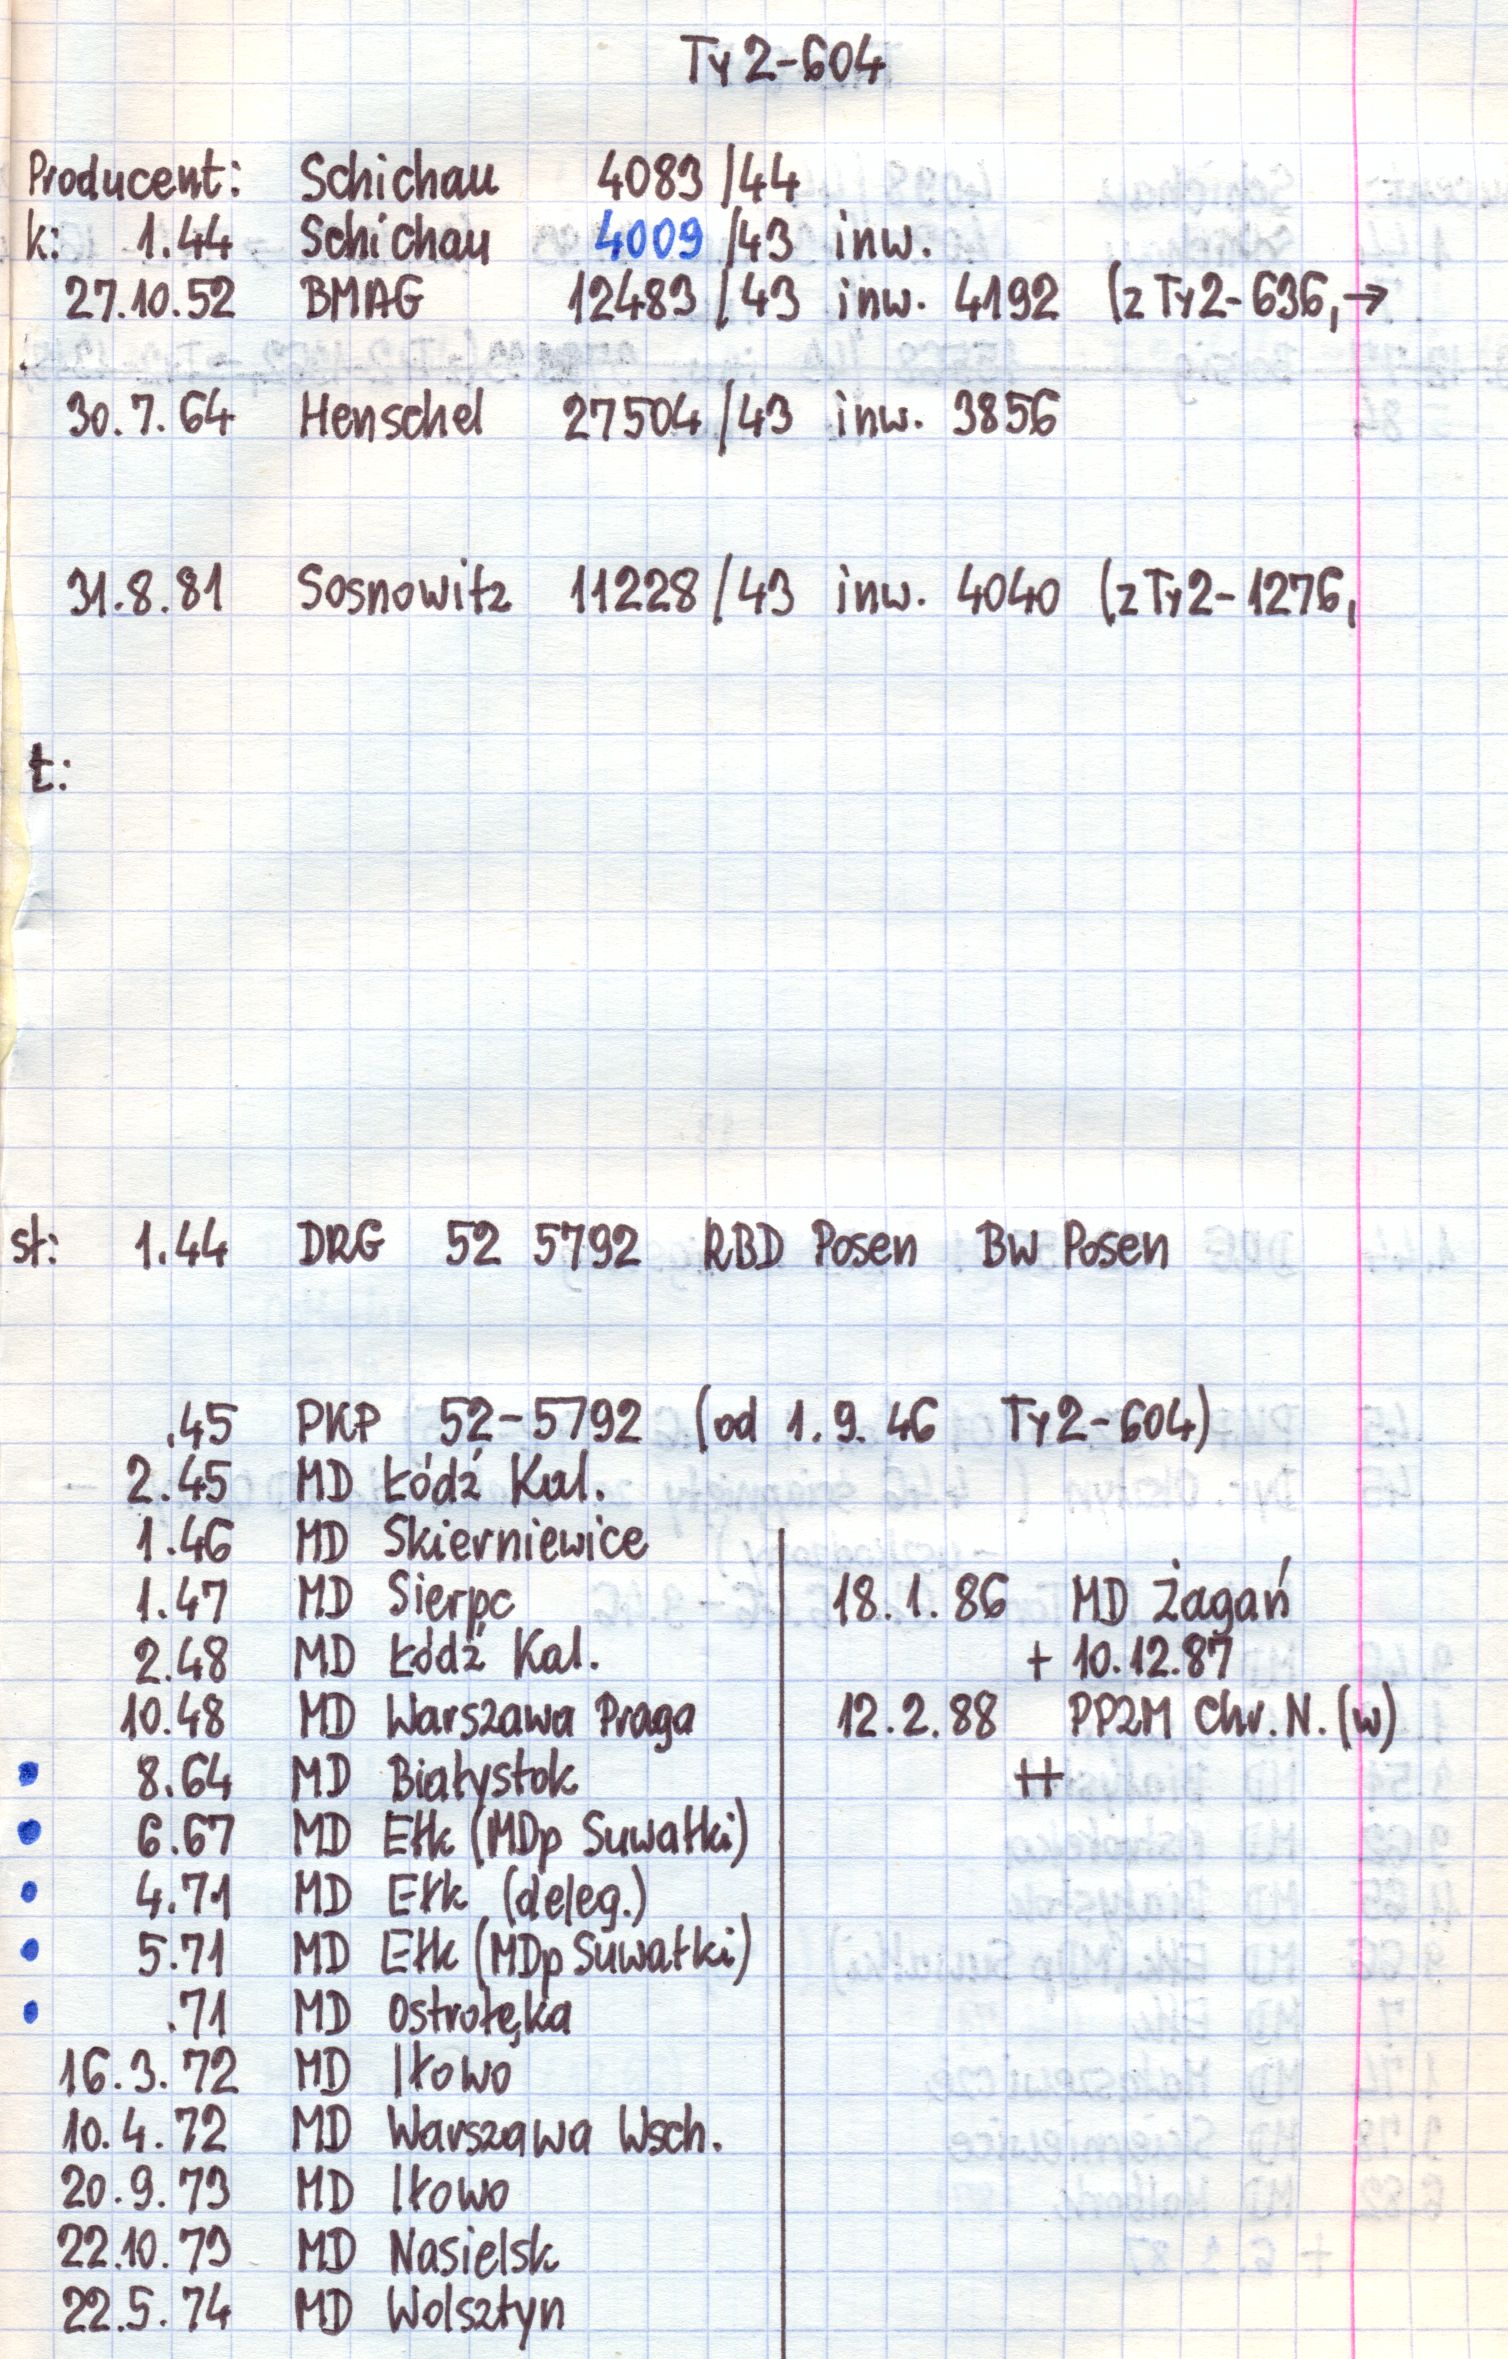 Ty2-604
Producent: Schichau 4083/44
k: 1.44 Schichau 4009/43 inw.
27.10.52 BMAG 12483/43 inw. 4192 (z Ty2-636, →
30.7.64 Henschel 27504/43 inw. 3856
31.8.81 Sosnowitz 11228/43 inw. 4040 (z Ty2-1276,
t:
st: 1.44 DRG 52 5792 RBD Posen BW Posen
.45 PKP 52-5792 (od 1.9.46 Ty2-604)
2.45 MD Łódź Kal.
1.46 MD Skierniewice
1.47 MD Sierpc
2.48 MD Łódź Kal.
10.48 MD Warszawa Praga
• 8.64 MD Białystok
• 6.67 MD Ełk (MDp Suwałki)
• 4.71 MD Ełk (deleg.)
• 5.71 MD Ełk (MDp Suwałki)
• .71 MD Ostrołęka
16.3.72 MD Iłowo
10.4.72 MD Warszawa Wsch.
20.9.73 MD Iłowo
22.10.73 MD Nasielsk
22.5.74 MD Wolsztyn
18.1.86 MD Żagań
+ 10.12.87
12.2.88 PPZM Chr. N. (w)
++